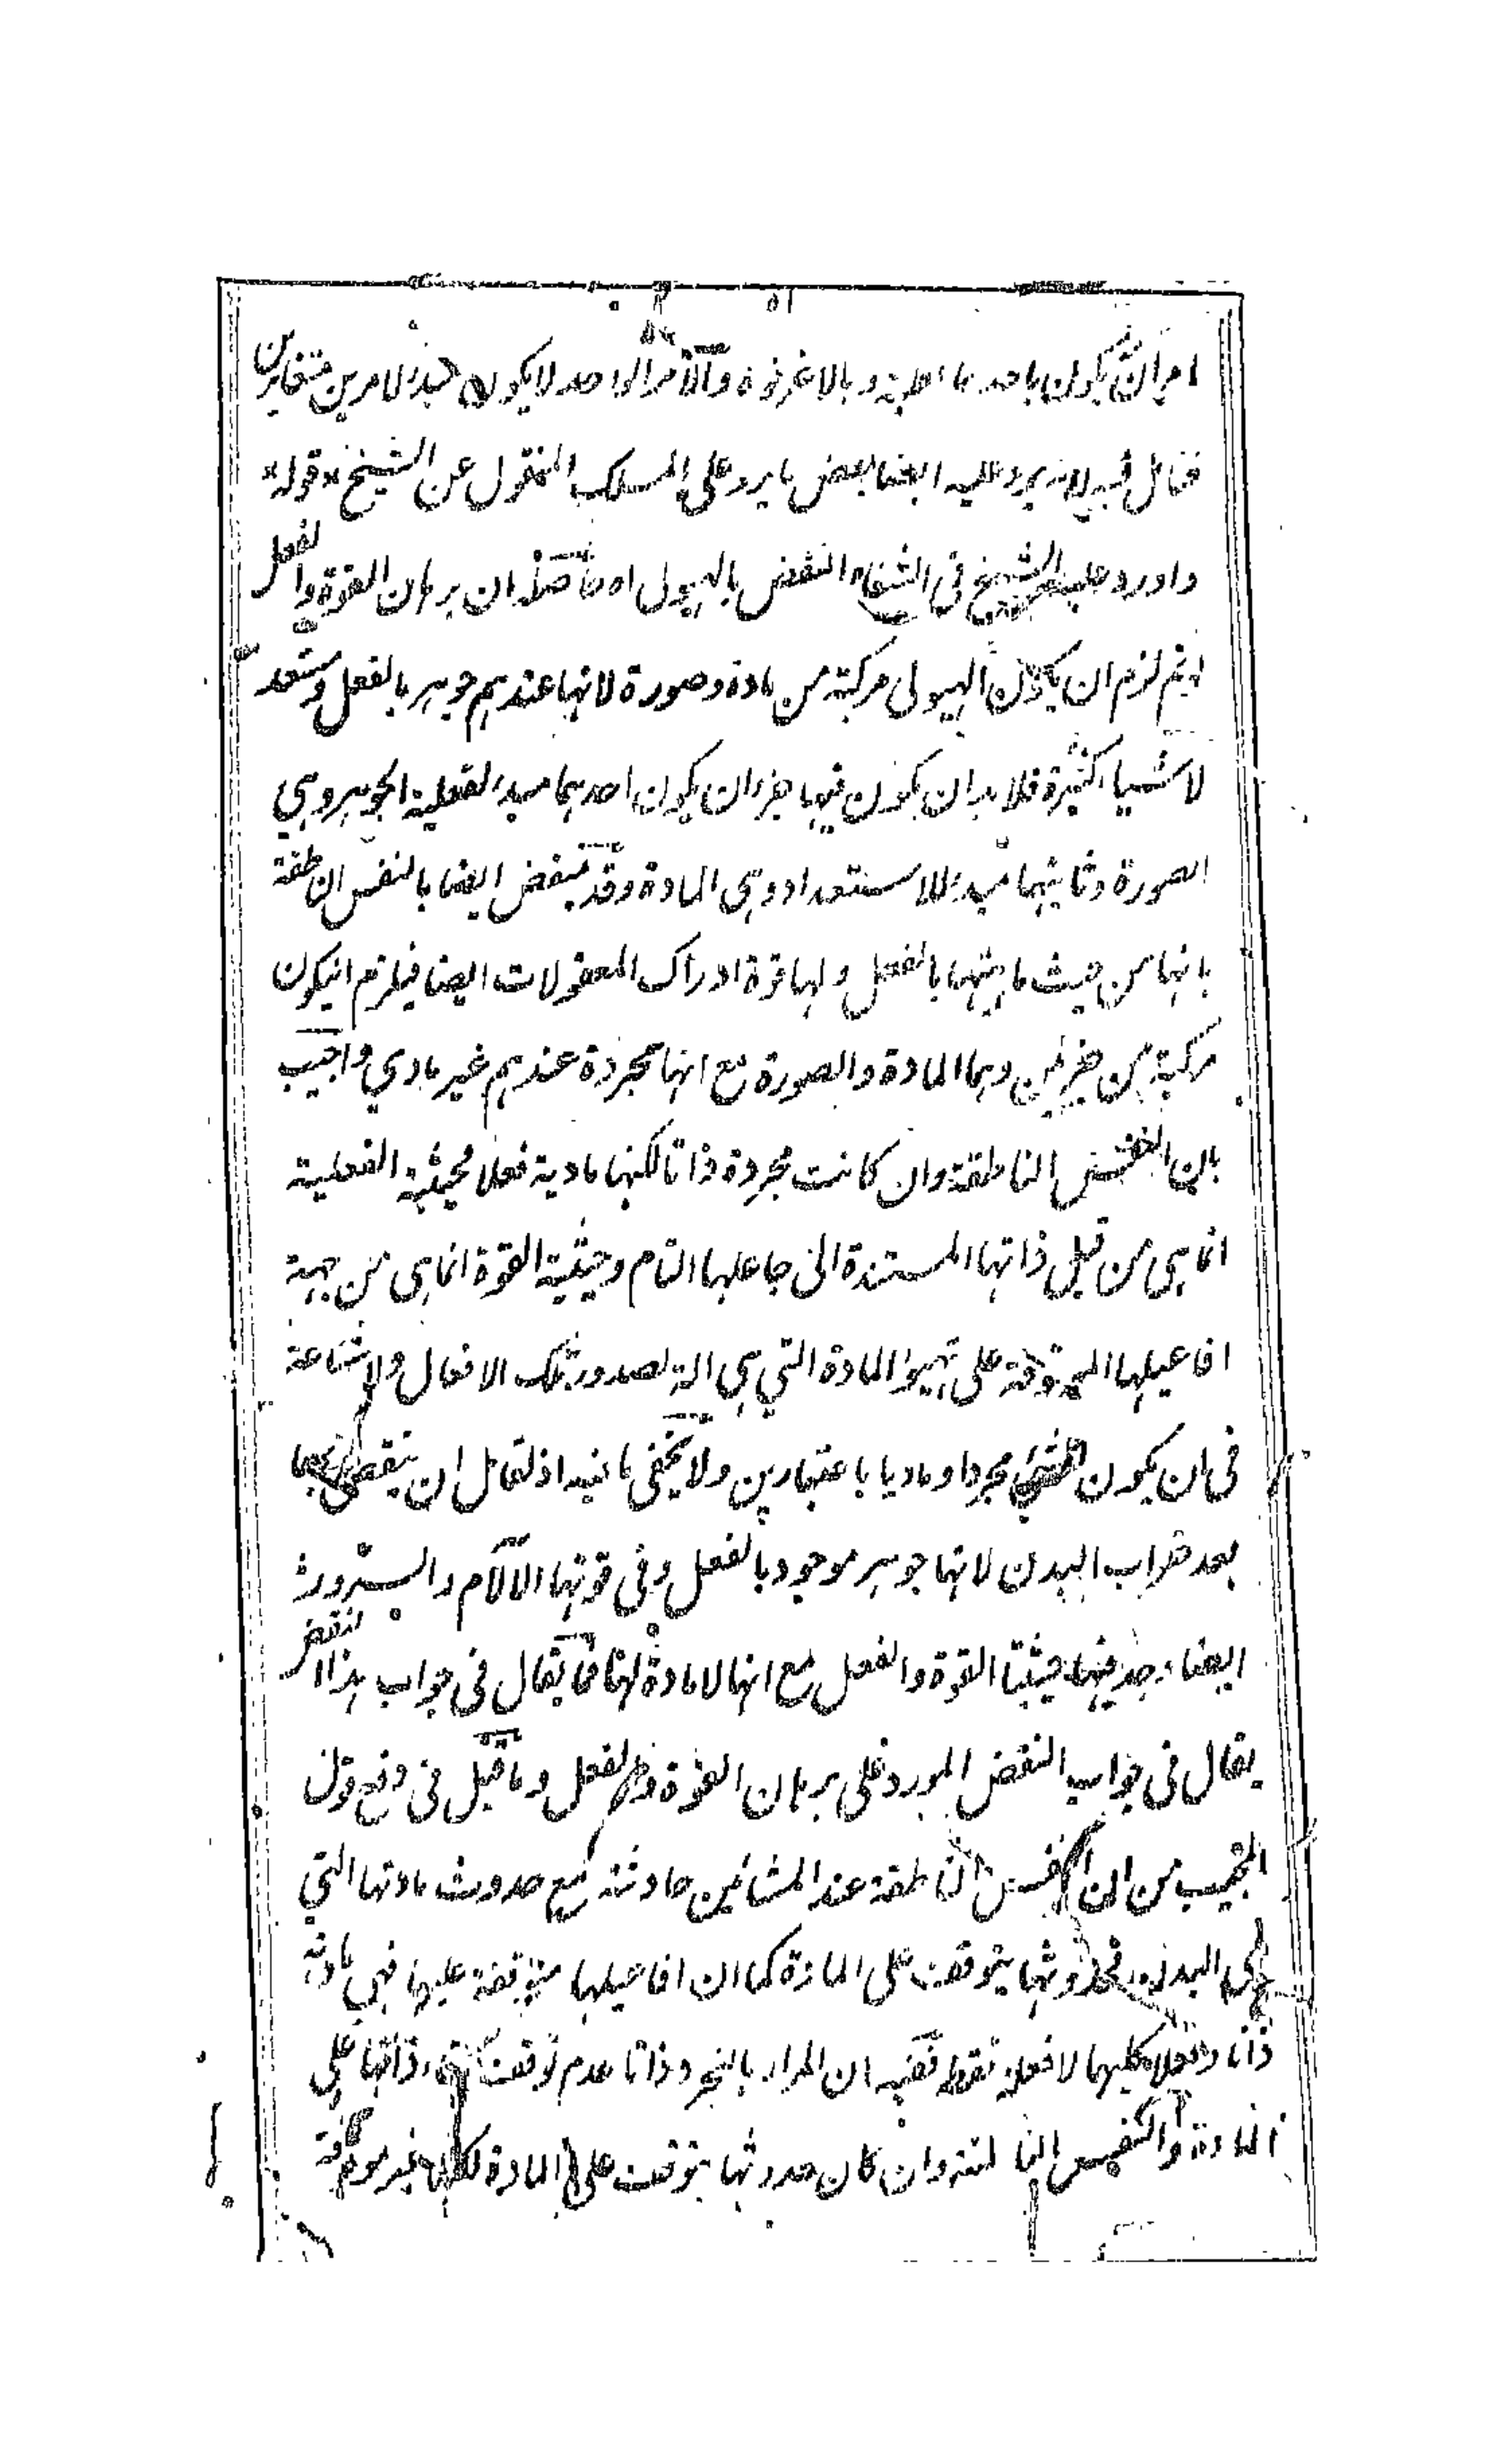 امران يكون باحدهما بالفعل وبالاخر قوة والامر الواحد لا يكون مبدء لامرين متغايرين
فتامل فيه لانه يرد عليه ايضا بعض ما يرد على المسلك المنقول عن الشيخ قوله
واورد عليه الشيخ فى الشفاء النقض بالهيولى اه حاصله ان برهان القوة والفعل
لو تم لزم ان يكون الهيولى مركبة من مادة وصورة لانها عندهم جوهر بالفعل ومستعد
لاشياء كثيرة فلا بد ان يكون فيها جزءان يكون احدهما مبدء لفعلية الجوهر وهي
الصورة وثانيهما مبدء للاستعداد وهى المادة وقد ينقض ايضا بالنفس الناطقة
بانها من حيث ماهيتها بالفعل ولها قوة ادراك المعقولات ايضا فيلزم ان يكون
مركبة من جزئين وهما المادة والصورة مع انها مجردة عندهم غير مادي واجيب
بان النفس الناطقة وان كانت مجردة ذاتا لكنها مادية فعلا فحيثية الفعلية
انما هى من قبل ذاتها المستندة الى جاعلها التام وحيثية القوة انما هى من جهة
افاعيلها الموقوفة على تهيؤ المادة التي هى الة لصدور تلك الافعال ولا شناعة
فى ان يكون الشيء مجردا وماديا باعتبارين ولا يخفى ما فيه اذ لقائل ان ينقض بها
بعد خراب البدن لانها جوهر موجود بالفعل وفى قوتها الالام والسرور
ايضا يوجد فيها حيثيتا القوة والفعل مع انها لا مادة لها فما يقال فى جواب هذا النقض
يقال فى جواب النقض المورد على برهان القوة والفعل وما قيل فى دفع قول
المجيب من ان النفس الناطقة عند المشائين حادثة مع حدوث مادتها التي
هى البدن فحدوثها يتوقف على المادة كما ان افاعيلها متوقفة عليها فهي مادية
ذاتا وفعلا كليهما لا فعلا فقط ففيه ان المراد بالتجرد ذاتا عدم توقف ذاتها على
المادة والنفس الناطقة وان كان حدوثها يتوقف على المادة لكنها غير موقوفة